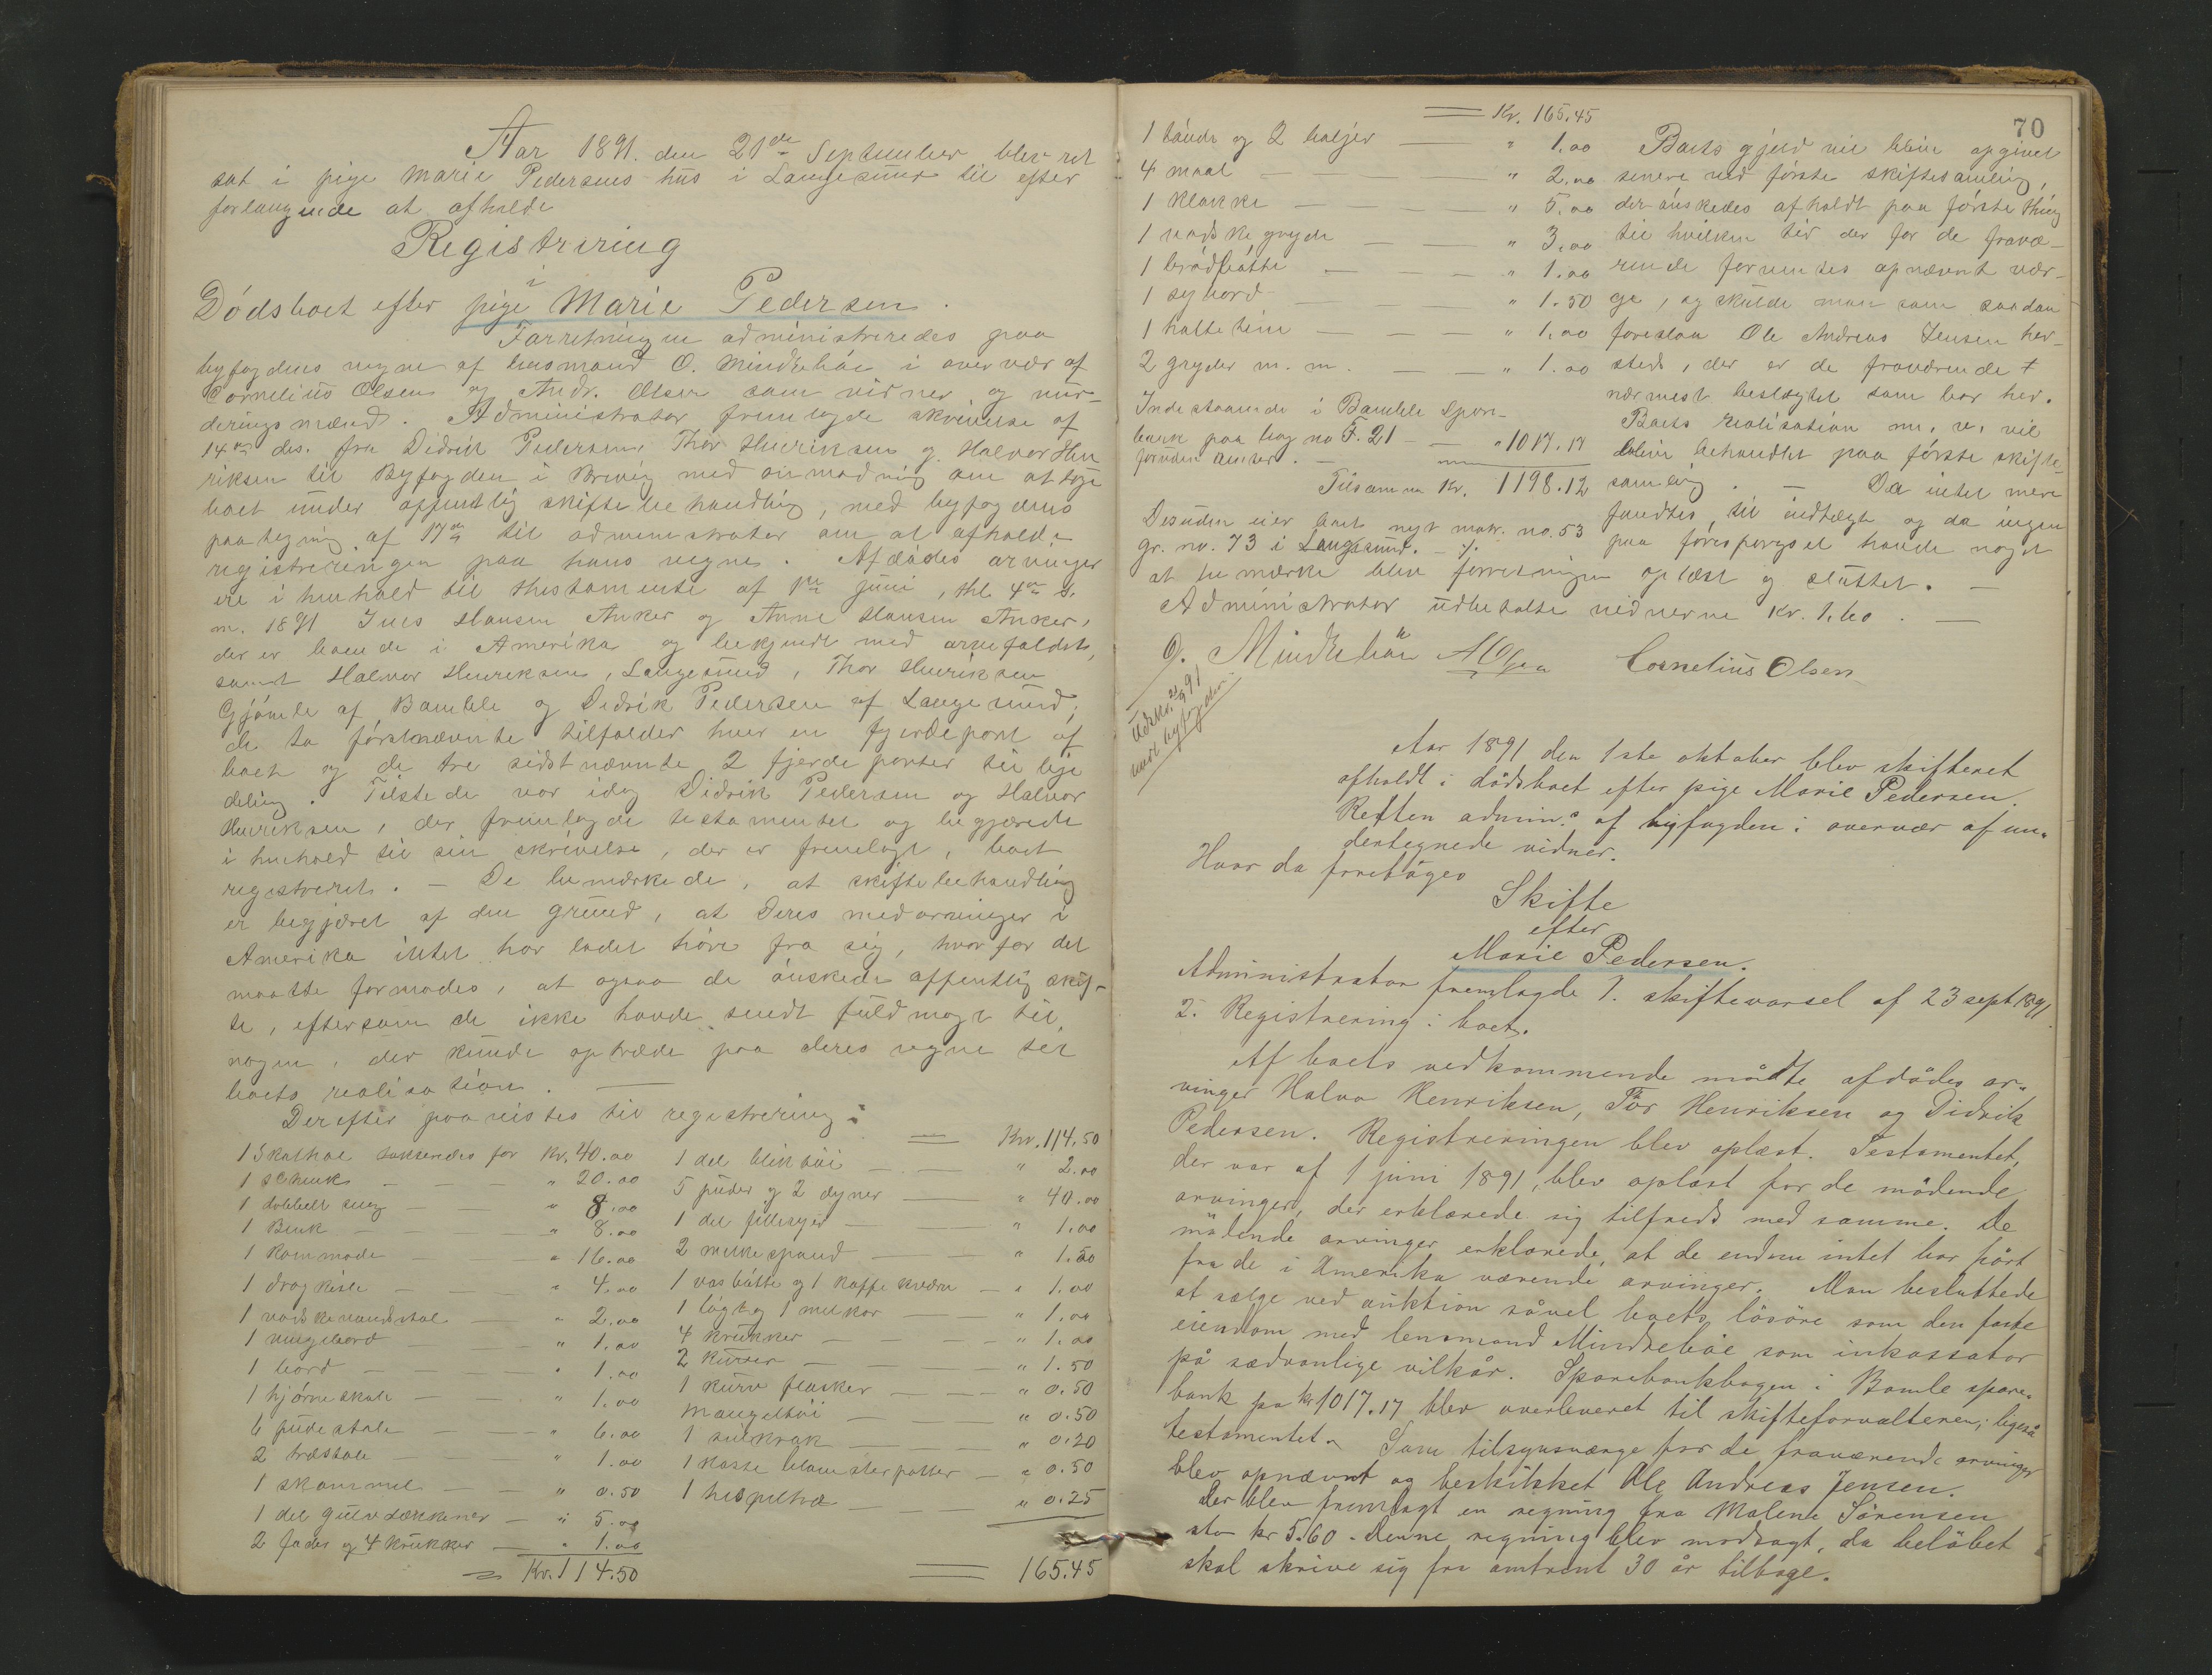 Aar 1891. den 21de September blev ret
sat i pige Marie Pedersens hus i Langesund til efter
forlangende at afholde
Registrering
i
Dödsboet efter pige Marie Pedersen.
Forretningen administreredes paa
byfogdens vegne af lensmand O. Mindrebóe i overvær af
Cornelius Olsen og Andr. Olsen som vidner og vur-
deringsmænd. Administrator fremlagde skrivelse af
14de ds. fra Didrik Pedersen, Thor Henriksen og Halvor Hen
riksen til Byfogden i Brevig med anmodning om at tage
boet under offentlig skiftebehandling, med byfogdens
paategning af 17de til administrator om at afholde
registreringen paa hans vegne. Afdødes arvinger
ere i henhold til thestamente af 1ste juni, thl. 4de s.
m. 1891 Jens Hansen Anker og Anne Hansen Anker,
der er boende i Amerika og bekjendt med arvefaldet,
samt Halvor Henriksen, Langesund, Thor Henriksen
Gjömle af Bamble og Didrik Pedersen af Langesund;
de to förstnævnte tilfalder hver en fjerdepart af
boet og de tre sidstnævnte 2 fjerdeparter til lige
deling. Tilstede var idag Didrik Pedersen og Halvor
Henriksen, der fremlagde testamentet og begjærede
i henhold til sin skrivelse, der er fremlagt, boet
registreret. – De bemærkede, at skiftebehandling
er begjæret af den grund, at deres medarvinger i
Amerika intet har ladet höre fra sig, hvorfor det
maatte formodes, at ogsaa de önskede offentlig skif-
te, eftersom de ikke havde sendt fuldmagt til
nogen, der kunde optræde paa deres vegne ved
boets realisation. —
Derefter paavistes til registrering:
1 Skathol taksredes for Kr. 40.00
1 schenk — — — " 20.00
1 dobbelt seng — — " 8.00
1 Benk — — " 8.00
1 Kommode — " 16.00
1 dragkiste — — " 4.00
1 vadskevandsstol — " 2.00
1 vingebord — — " 1.00
1 bord — — — " 1.00
1 hjörneskab — — " 1.00
6 pudestole — — " 6.00
2 træstole — — " 1.00
1 skammel — — " 0.50
1 del gulvdækkener — " 5.00
2 fader og 4 krukker — " 1.00
Kr. 114.50
Kr. 114.50
1 del bliktöi — — " 2.00
5 puder og 2 dyner — " 40.00
1 del filleryer — — " 1.00
2 melkespand — — " 1.50
1 vasbötte og 1 kaffekværn — " 1.00
1 lögt og 1 melkar — " 1.00
4 krukker — — " 1.00
2 kurver — — " 1.50
1 kurv flasker — — " 0.50
Mangeltöi — — " 0.50
1 — — " 0.20
1 kasse blomsterpotter — " 0.50
1 hespetræ — — " 0.25
165.45
70
Kr. 165.45
1 tönde og 2 baljer — " 1.00
4 maal — — — " 2.00
1 Klokke — — — " 5.00
1 vadskegryde — — " 3.00
1 brödbötte — — — " 1.00
1 sybord — — — " 1.50
1 hatteteine — — — " 1.00
2 gryder m. m. — — " 1.00
Indestaaende i Bamble Spare-
bank paa bog no F. 21 — — " 1017.17
foruden renter. —
Tilsammen Kr. 1198.12
Desuden eier boet nyt matr. no. 53
gr. no. 73 i Langesund. – ./.
Boets gjeld vil blive opgivet
senere ved förste skiftesamling,
der önskedes afholdt paa förste thing
til hvilken tid der for de fravæ-
rende formentes opnævnt vær-
ge, og skulde man som saadan
foreslaa Ole Andreas Jensen her-
steds, der er de fraværende
nærmest beslægtet som bor her.
Boets realisation m. v. vil
blive behandlet paa förste skifte-
samling. — Da intet mere
fandtes til indtægt og da ingen
paa foresporgsel havde noget
at bemærke blev forretningen oplæst og sluttet. —
Administrator udbetalte vidnerne Kr. 1.60. —
O. Mindreböe AOlsen Cornelius Olsen
Udskr. 21/9 91
med byfogden.
Aar 1891 den 1ste oktober blev skifteret
afholdt i dödsboet efter pige Marie Pedersen.
Retten admins. af byfogden i overvær af un-
dertegnede vidner.
Hvor da foretoges
Skifte
efter
Marie Pedersen.
Administrator fremlagde 1. skiftevarsel af 23 sept. 1891.
2. Registrering i boet.
Af boets vedkommende mödte afdödes ar-
vinger Halvor Henriksen, Tor Henriksen og Didrik
Pedersen. Registreringen blev oplæst. Testamentet,
der var af 1 juni 1891, blev oplæst for de mödende
arvinger, der erklærede sig tilfreds med samme. De
mödende arvinger erklærede, at de endnu intet har hört
fra de i Amerika værende arvinger. Man besluttede
at sælge ved auktion såvel boets lösöre som den faste
eiendom med lensmand Mindreböe som inkassator
på sædvanlige vilkår. Sparebankbogen i Bamle spare-
bank på kr 1017.17 blev overleveret til skifteforvalteren, ligeså
testamentet. Som tilsynsværge for de fraværende arvinger
blev opnævnt og beskikket Ole Andreas Jensen.
Der blev fremlagt en regning fra Malene Sörensen
sto kr 5.60. Denne regning blev modsagt, da belöbet
skal skrive sig fra omtrent 30 år tilbage.